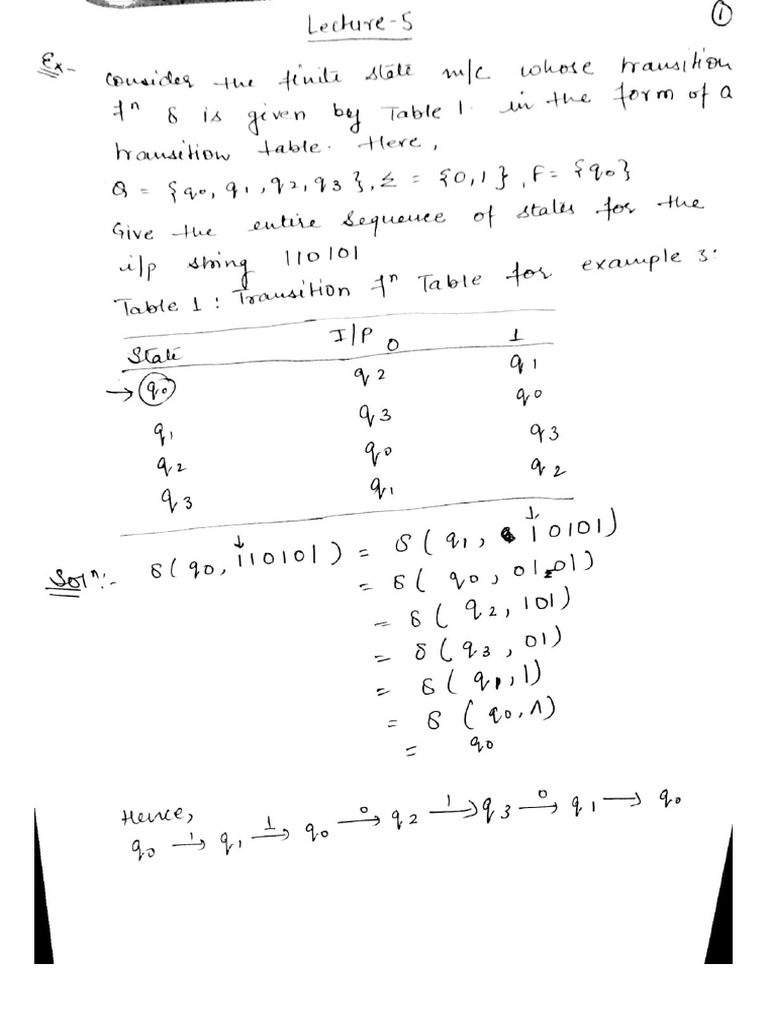 Lecture-5
①
Ex- Consider the finite state m/c whose transition
fⁿ δ is given by Table 1. in the form of a
transition table. Here,
Q = {q0, q1, q2, q3}, Σ = {0,1}, F = {q0}
Give the entire sequence of states for the
i/p string 110101
Table 1 : Transition fⁿ Table for example 3:
State I/P 0 1
→ q0 q2 q1
q1 q3 q0
q2 q0 q3
q3 q1 q2
Solⁿ:- δ(q0, 110101) = δ(q1, 10101)
= δ(q0, 0101)
= δ(q2, 101)
= δ(q3, 01)
= δ(q1, 1)
= δ(q0, Λ)
= q0
Hence,
q0 —1→ q1 —1→ q0 —0→ q2 —1→ q3 —0→ q1 → q0